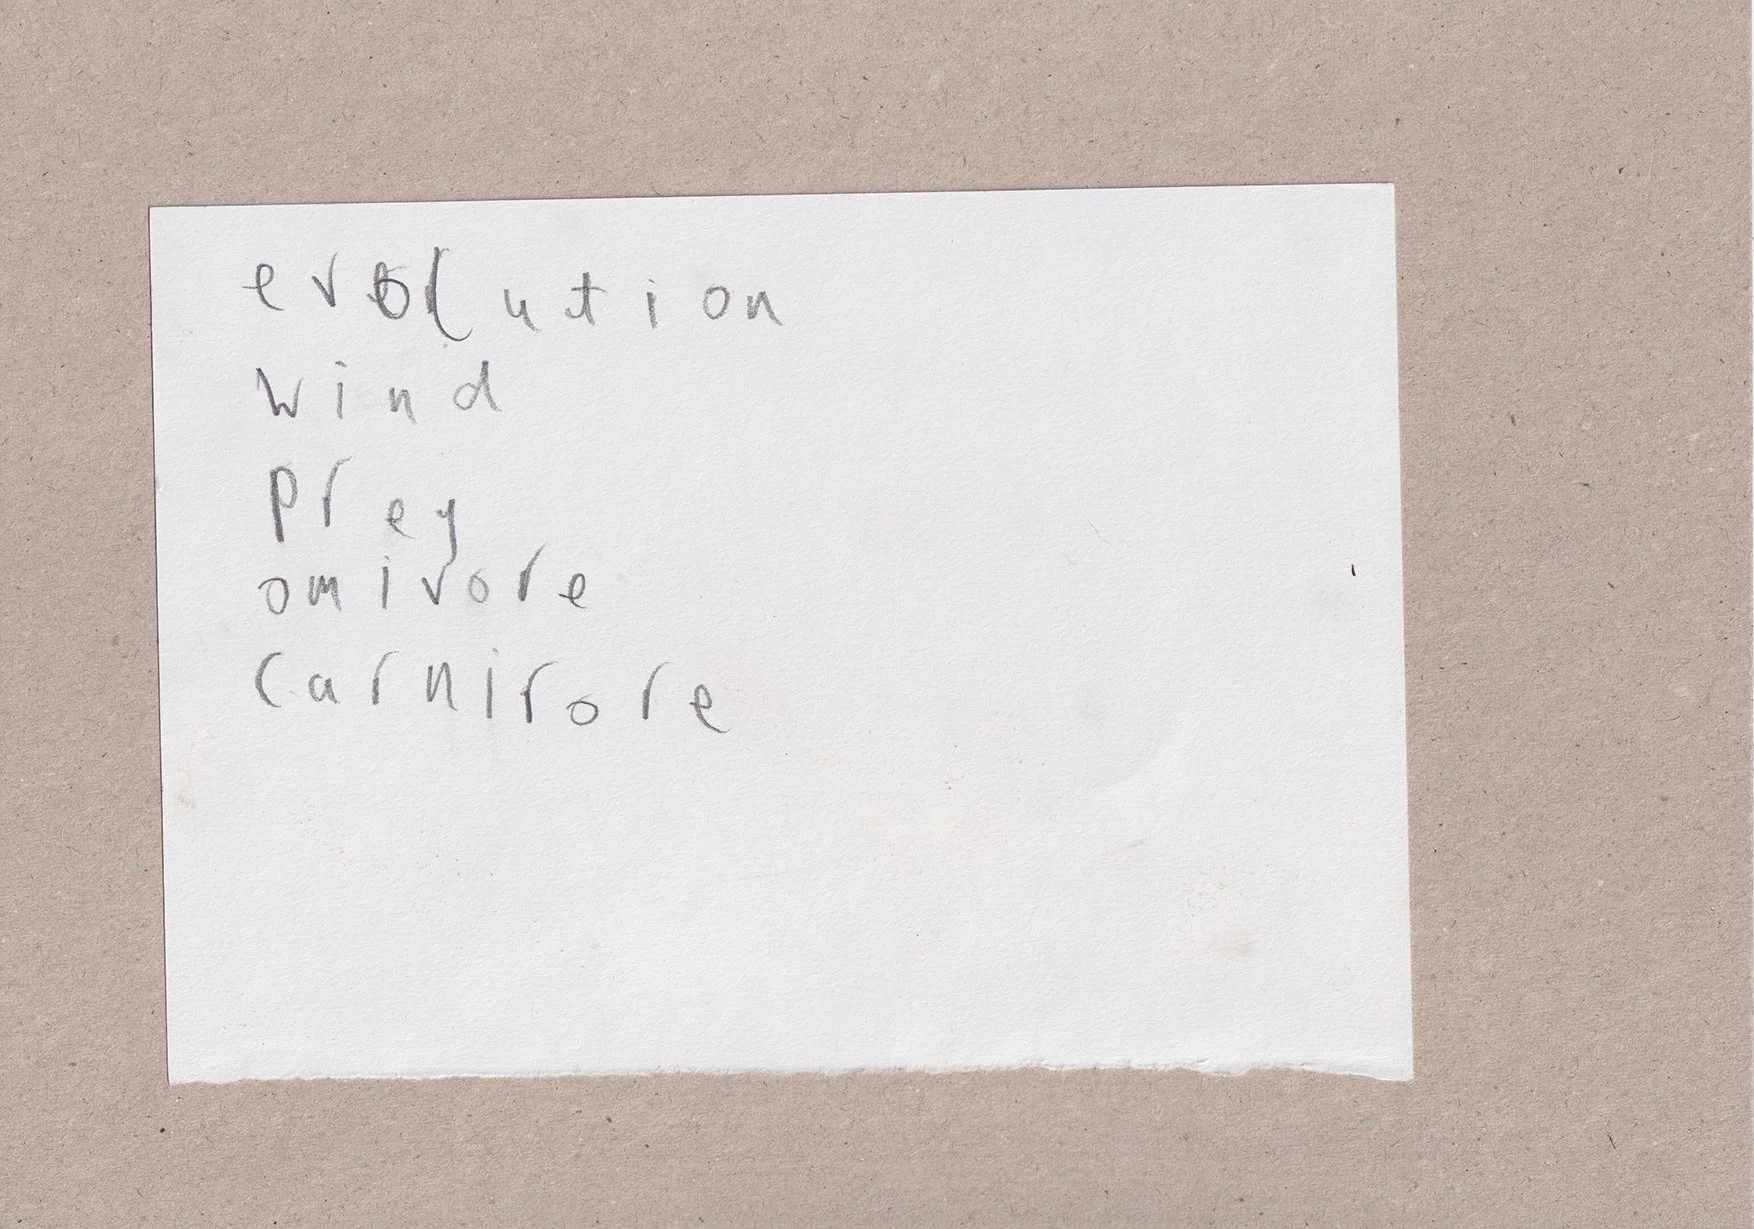 evolution
wind
prey
omivore
carnivore